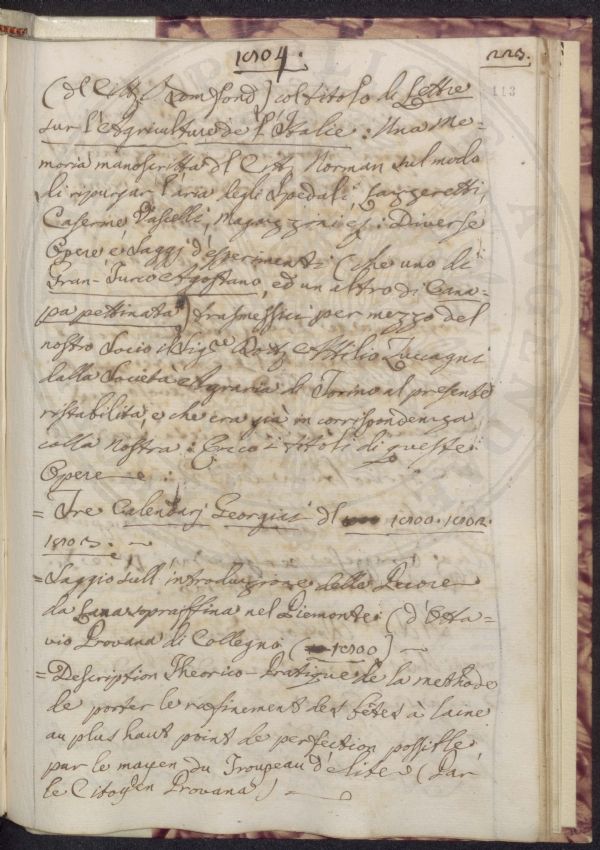 1804.
223.
113
(del Citt. Romford) col titolo di Lettre
sur l'Agriculture de l'Italie: Una Me-
moria manoscritta del Citt. Norman sul modo
di ripurgar l'aria degli Spedali, Lazzeretti,
Caserme, Vascelli, Magazzini &: Diverse
Opere e Saggi d'esperimenti (che uno di
Gran-Turco Agostano, ed un altro di Cana-
pa pettinata) trasmessici per mezzo del
nostro Socio il Sigr. Dott. Attilio Zuccagni
dalla Società Agraria di Torino al presente
ristabilita, e che era già in corrispondenza
colla nostra: Ecco i titoli di queste
Opere:
= Tre Calendarj Georgici del 1800. 1802.
1803.
= Saggio sull'introduzione delle Pecore
da Lana sopraffina nel Piemonte: (d'Otta-
vio Provana di Collegno (1800)
= Description Theorico-Pratique de la methode
de porter le rafinement des bêtes à laine
au plus haut point de perfection possible
par le moyen du Troupeau d'elite (Par
le Citoyen Provana)